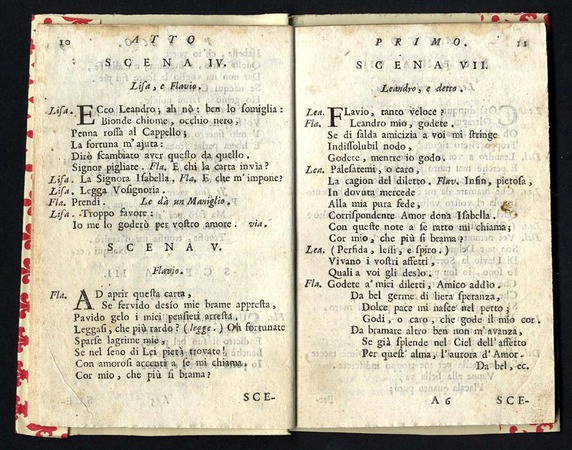 10 ATTO
SCENA IV.
Lisa, e Flavio.
Lisa. ECco Leandro; ah nò: ben lo somiglia:
Bionde chiome, occhio nero,
Penna rossa al Cappello;
La fortuna m'ajuta:
Dirò scambiato aver questo da quello.
Signor pigliate. Fla. E chi la carta invia?
Lisa. La Signora Isabella. Fla. E che m'impone?
Lisa. Legga Vosignoria.
Fla. Prendi. Le dà un Maniglio.
Lisa. Troppo favore:
Io me lo goderò per vostro amore. via.
SCENA V.
Flavio.
Fla. AD aprir questa carta,
Se fervido desio mie brame appresta,
Pavido gelo i miei pensieri arresta.
Leggasi, che più tardo? (legge.) Oh fortunate
Sparse lagrime mie,
Se nel seno di Lei pietà trovate!
Con amorosi accenti a se mi chiama.
Cor mio, che più si brama?
SCE-
PRIMO. 11
SCENA VII.
Leandro, e detto.
Lea. FLavio, tanto veloce?
Fla. Leandro mio, godete.
Se di salda amicizia a voi mi stringe
Indissolubil nodo,
Godete, mentre io godo.
Lea. Palesatemi, o caro,
La cagion del diletto. Flav. Infin, pietosa,
In dovuta mercede
Alla mia pura fede,
Corrispondente Amor dona Isabella.
Con queste note a se ratto mi chiama;
Cor mio, che più si brama?
Lea. (Perfida, lessi, e spiro.)
Vivano i vostri affetti,
Quali a voi gli desìo.
Fla. Godete a' miei diletti, Amico addìo.
Da bel germe di lieta speranza,
Dolce pace mi nasce nel petto;
Godi, o caro, che gode il mio cor.
Da bramare altro ben non m'avanza,
Se già splende nel Ciel dell'affetto
Per quest' alma, l'aurora d'Amor.
Da bel, ec.
A 6 SCE-